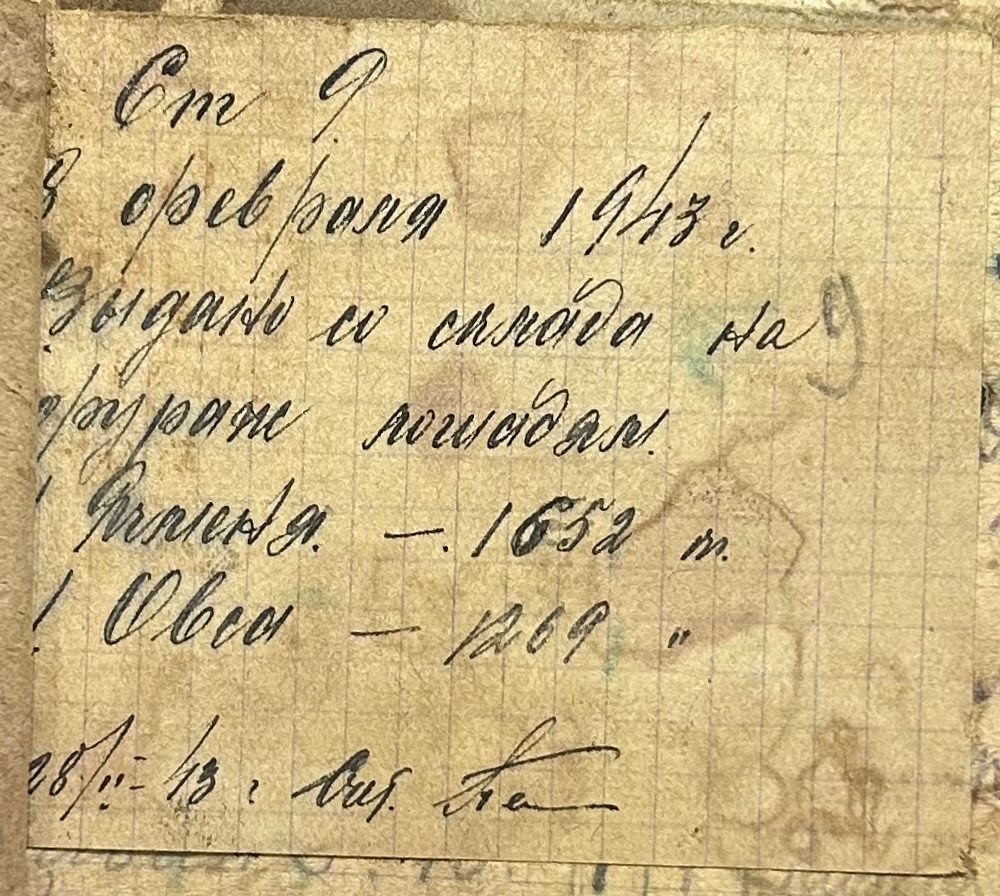 Ст 9.
В феврале 1943 г.
Выдано со склада на 9
фураж лошадям.
! Ячменя. —. 1652 т.
! Овса — 1269 "
28/II - 43 г.